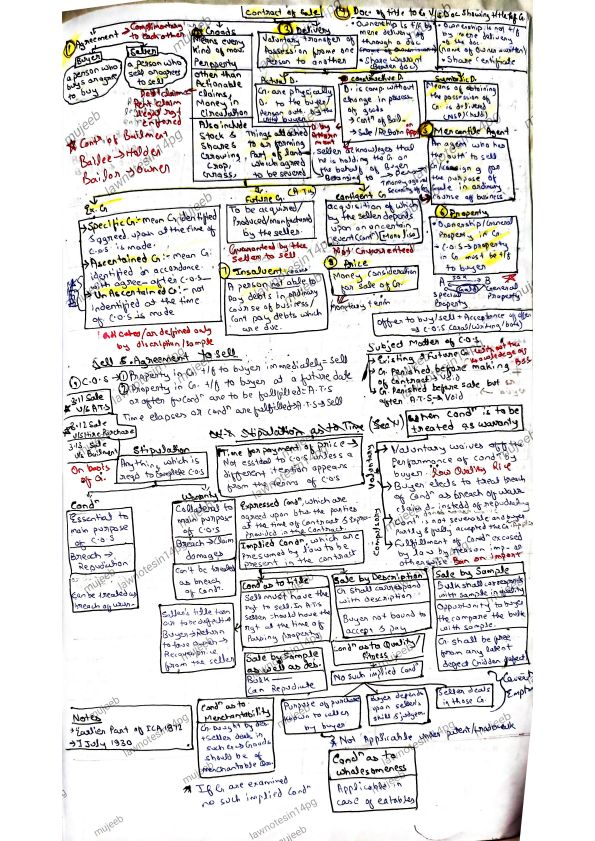 Contract of Sale
① Agreement → Complimentary to each other
Buyer
a person who buys or agree to buy
Seller
a person who sell or agrees to sell
② Goods
Means every kind of mov. Property other than Actionable claims, Money in Circulation
Also include Stock & Shares Growing Crop, Grass,
Things attached to or forming Part of land which agreed to be severed
Debt claim
Legal rgt
enforced
* Cont. of Bailment
Bailee → Holder
Bailor → Owner
③ Delivery
Voluntary transfer of Possession from one Person to another
Actual D.
G. are physically D. to the buyer
Constructive D.
D. is comp. without change in possess. of goods
→ Contt of Bail.
Symbolic D.
Means of obtaining the possession of G. is delivered
④ Doc. of title to G. V/s Doc. Showing title of G.
Ownership is t/f by mere delivery or through a Doc.
* Share Warrant (Bearer doc.)
Ownership is not t/f by mere delivery of the doc.
* Share Certificate
Seller acknowledges that he is holding the G. on the behalf of Buyer
⑤ Mercantile Agent
An agent who has the auth. to sell
for the purpose of
in ordinary course of business
Ex. G.
Specific G. mean G. identified & agreed upon at the time of C.O.S is made.
Ascertained G. mean G. identified in accordance with agree. after C.O.S
Un Ascertained G. not indentified at the time of C.O.S is made
indicates/are defined only by discription/sample
Future G. (A.T.S)
To be acquired/Produced/manufactured by the seller.
Guaranteed by the Seller to sell
Contigent G.
acquisition of which by the seller depends upon an uncertain event (Contt)
Not Guaranteed
⑥ Property
→ Ownership/General Property in G.
→ C.O.S → property in G. must be t/f to buyer
special Property
General Property
⑦ Insolvent
A person not able to pay debts in ordinary course of business/Cant pay debts which are due.
⑧ Price
Money consideration for sale of G.
Monetary term
Offer to buy/sell + Acceptance of offer ⇒ C.O.S (Oral/writing/both)
Sell & Agreement to Sell
* C.O.S → ① Property in G. t/f to buyer immediately = Sell
② Property in G. t/f to buyer at a future date or after few condn are to be fulfilled = A.T.S
Time elapses or condn are fulfilled: A.T.S → Sell
3.11 Sale V/S A.T.S
3.12 Sale V/S Hire Purchase
3.13 Sale V/s Bailment
On basis of G.
Subject Matter of C.O.S
→ Existing & Future G.
→ G. Perished before making of contract → Void
without the knowledge of
→ G. Perished before sale but after A.T.S → Void
Stipulation as to Time
Stipulation
Anything which is reqd to Complete C.O.S
Time for payment of price → Not essential to C.O.S unless a different intention appears from the terms of C.O.S
When Condn is to be treated as warranty
Voluntary
→ Voluntary waives off the Performance of condn by buyer Low Quality Rice
→ Buyer elects to treat breach of Condn as breach of warr. claim d. instead of repudiating
Compulsory
→ Cont. is not severable and buyer Partly/fully accepted the G.
→ Fulfillment of Condn excused by law by reason imp. or otherwise Ban on import
Condn
Essential to main purpose of C.O.S
Breach → Repudiation
Can be treated as breach of warr.
Warranty
Collateral to main purpose of C.O.S
Breach → Claim damages
Can't be treated as breach of Condn
Expressed Condn, which are agreed upon btw the parties at the time of Contract & Expressly Provided in the Contract
Implied Condn, which are presumed by law to be present in the contract
Condn as to title
Seller must have the rgt to sell. In A.T.S seller should have the rgt at the time of Passing Property
Seller's title turn out to be defective Buyer → Return
from the seller
Sale by Description
G. shall correspond with description
Buyer not bound to accept & pay
Sale by Sample
Bulk shall corresponds with sample in quality
Opportunity to buyer to compare the bulk with sample.
G. shall be free from any latent defect (hidden defect)
Sale by Sample as well as des.
Bulk
Can Repudiate
Condn as to Quality Fitness
No such implied Condn
Caveat Emptor
Purpose of purchase known to seller by buyer
Buyer depends upon seller's skill & judgm.
Seller deals in those G.
* Not Applicable under patent/trademark
Condn as to Merchantability
G. bought by des. + Seller deals in such G. → Goods should be of merchantable
* If G. are examined no such implied Condn
Condn as to wholesomeness
Applicable in case of eatables
Notes
→ Earlier Part of ICA, 1872
→ 1 July 1930
mujeeb
lawnotesin14pg